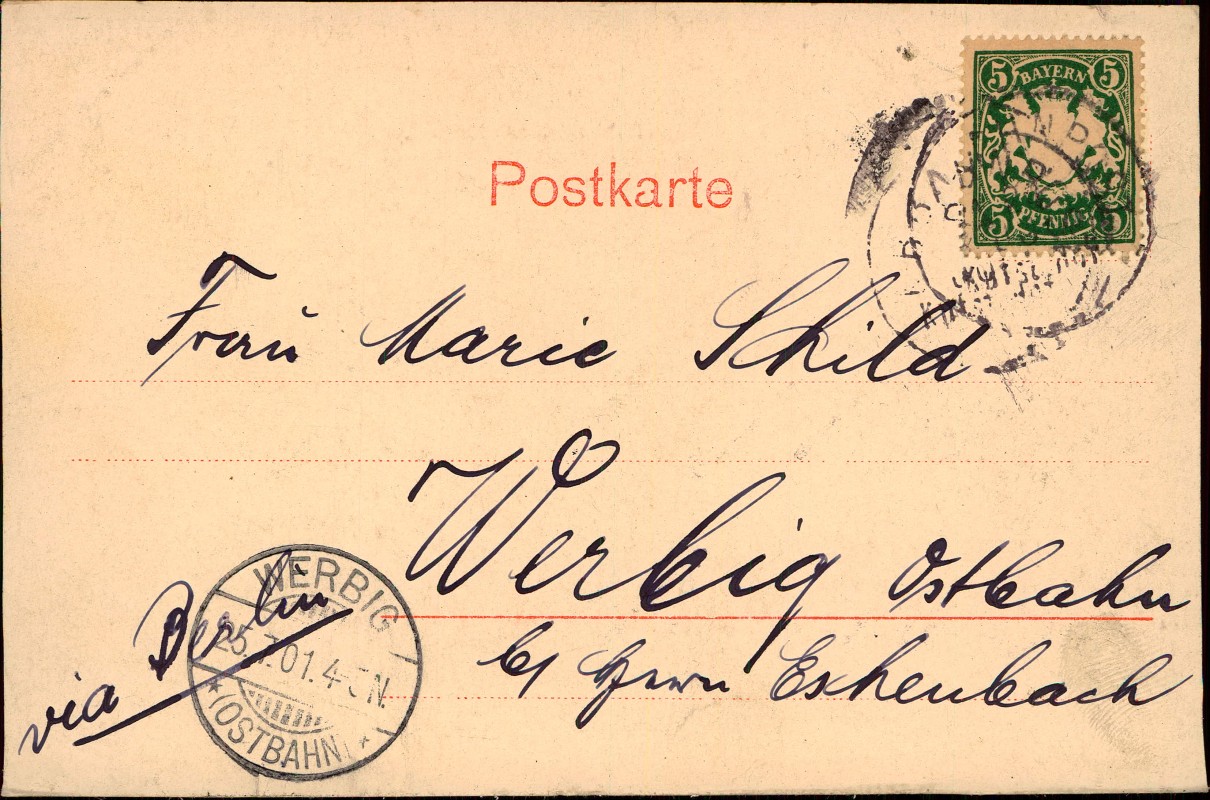 5 BAYERN 5
5 PFENNIG 5
Postkarte
Frau Marie Schild
Werbig Ostbahn
b/ Herrn Eschenbach
via Berlin
WERBIG
25.7.01.4-5N.
*(OSTBAHN)*